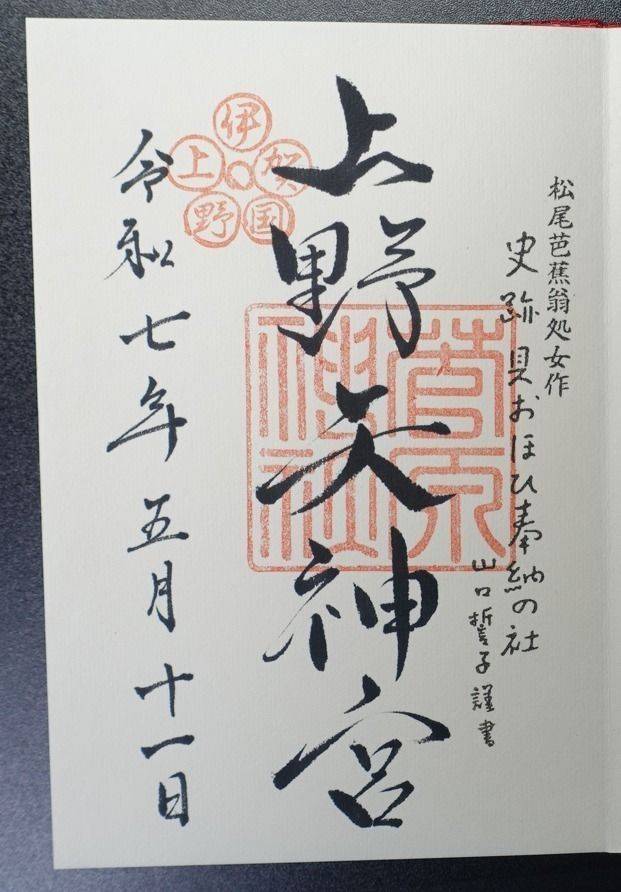 松尾芭蕉翁処女作
史跡 貝おほひ奉納の社
山口誓子謹書
上野天神宮
菅原神社
伊賀国上野
令和七年五月十一日